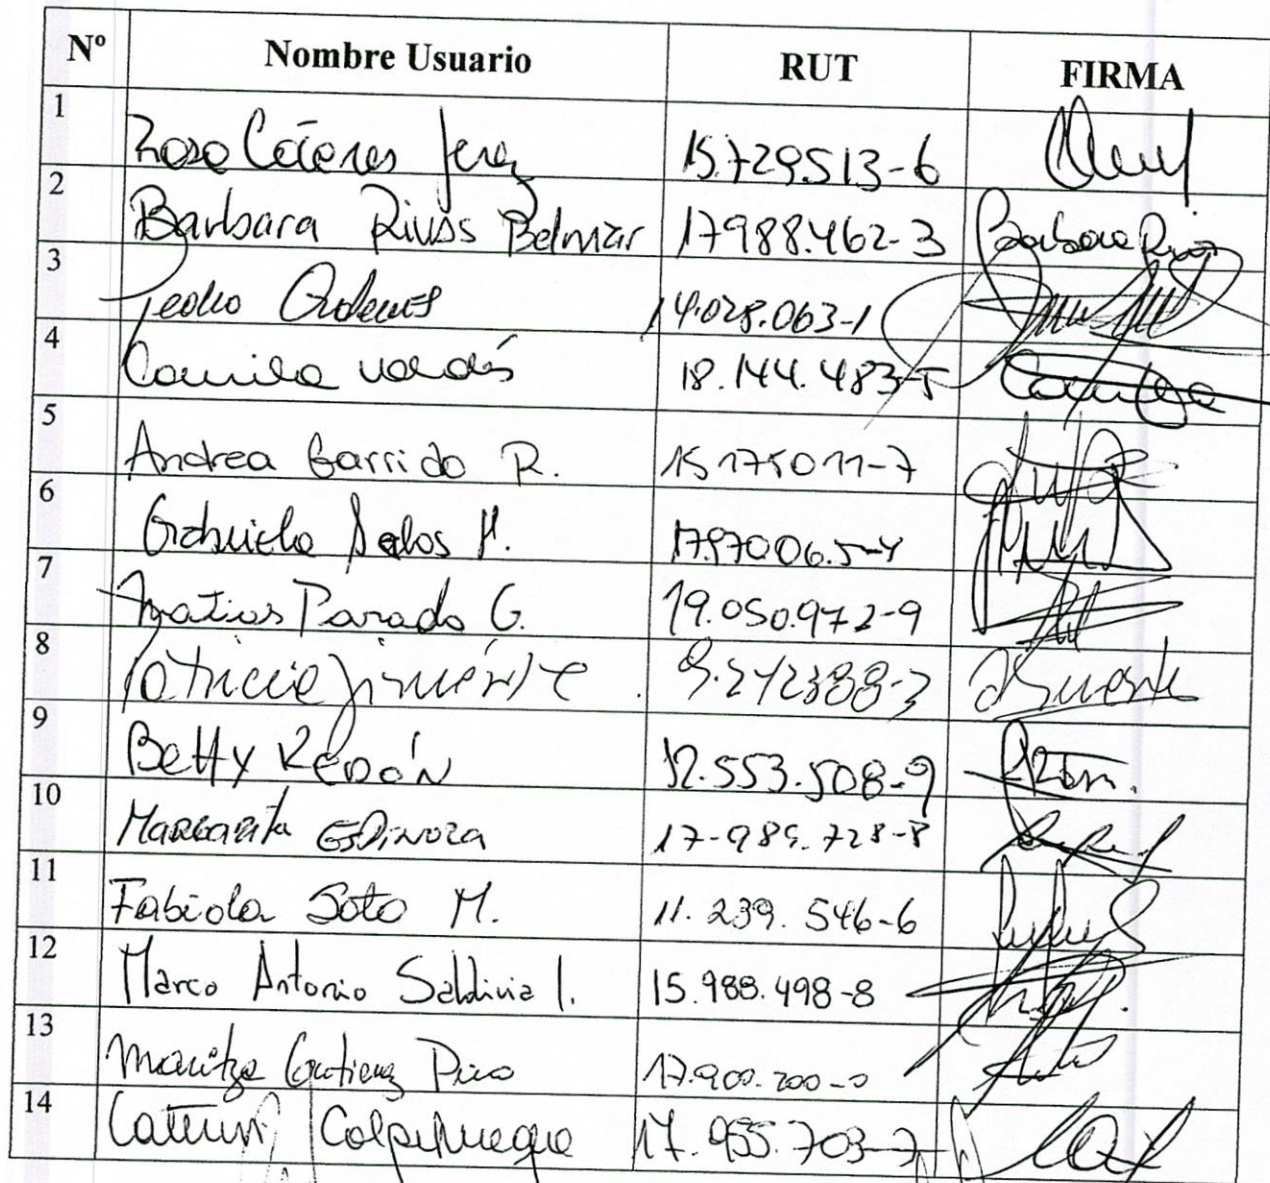 Nº Nombre Usuario RUT FIRMA
1 Rosa Cáceres Jerez 15.729.513-6
2 Barbara Rivas Belmar 17988.462-3 Barbara Rivas
3 Pedro Ordenes 14.028.063-1
4 Camila Valdés 18.144.483-5 Camila
5 Andrea Garrido R. 15175011-7
6 Gabriela Salas H. 17.970065-4
7 Matias Parada G. 19.050.972-9
8 Patricia Jiménez 9.242388-3
9 Betty Redón 12.553.508-9
10 Margarita Espinoza 17-985.728-8
11 Fabiola Soto M. 11.239.546-6
12 Marco Antonio Saldivia I. 15.988.498-8
13 Maritza Gutierrez Pino 17.900.200-0
14 17.955.703-7